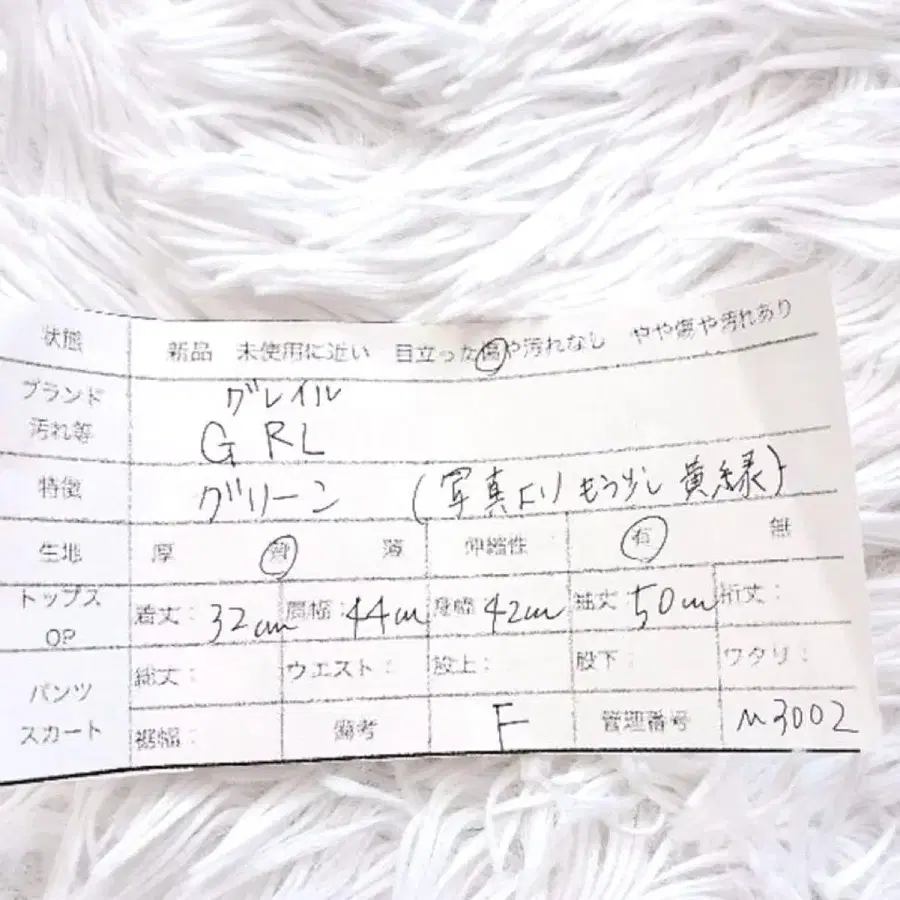 状態 新品 未使用に近い 目立った傷や汚れなし やや傷や汚れあり
ブランド グレイル
汚れ等 GRL
特徴 グリーン (写真よりもう少し黄緑)
生地 厚 普 薄 伸縮性 有 無
トップス
OP 着丈: 32cm 肩幅: 44cm 身幅: 42cm 袖丈: 50cm 裄丈:
パンツ 総丈: ウエスト: 股上: 股下: ワタリ:
スカート 裾幅: 備考 F 管理番号 M3002